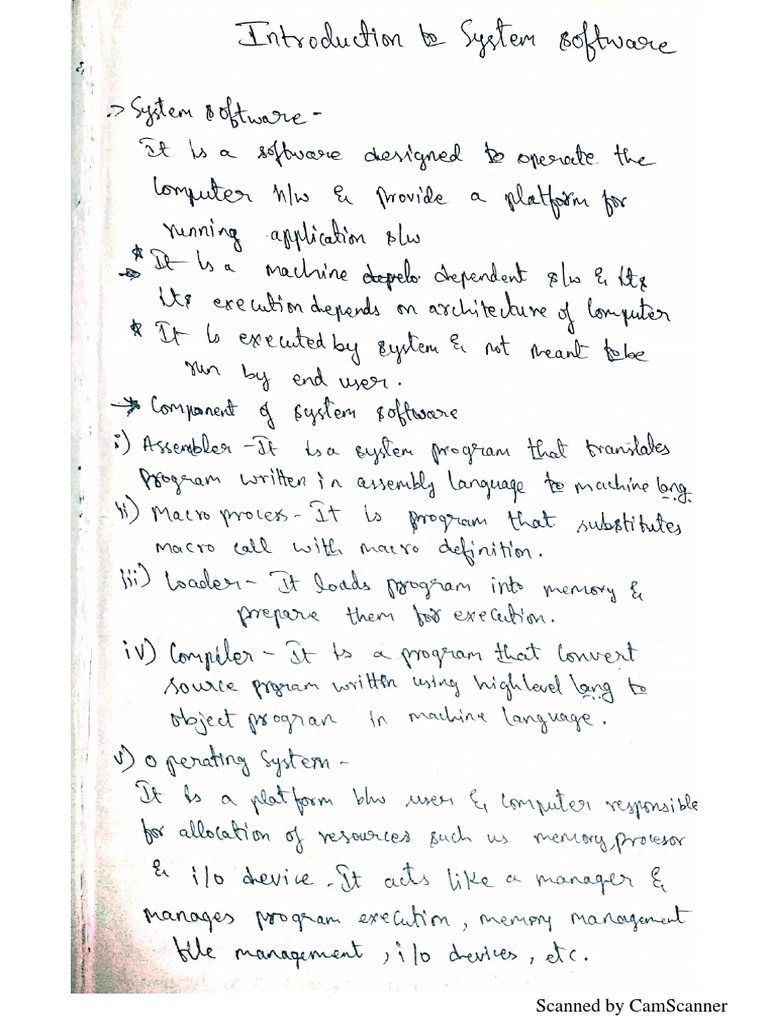 Introduction to System software
-> System software -
It is a software designed to operate the
computer h/w & provide a platform for
running application s/w
* It is a machine dependent s/w & its
its execution depends on architecture of computer
* It is executed by system & not meant to be
run by end user.
-> Component of system software
i) Assembler - It is a system program that translates
program written in assembly language to machine lang.
ii) Macro process - It is program that substitutes
macro call with macro definition.
iii) Loader - It loads program into memory &
prepare them for execution.
iv) Compiler - It is a program that convert
source prgram written using high level lang to
object program in machine language.
v) Operating System -
It is a platform b/w user & computer responsible
for allocation of resources such us memory, procesor
& i/o device. It acts like a manager &
manages program execution, memory management
file management, i/o devices, etc.
Scanned by CamScanner